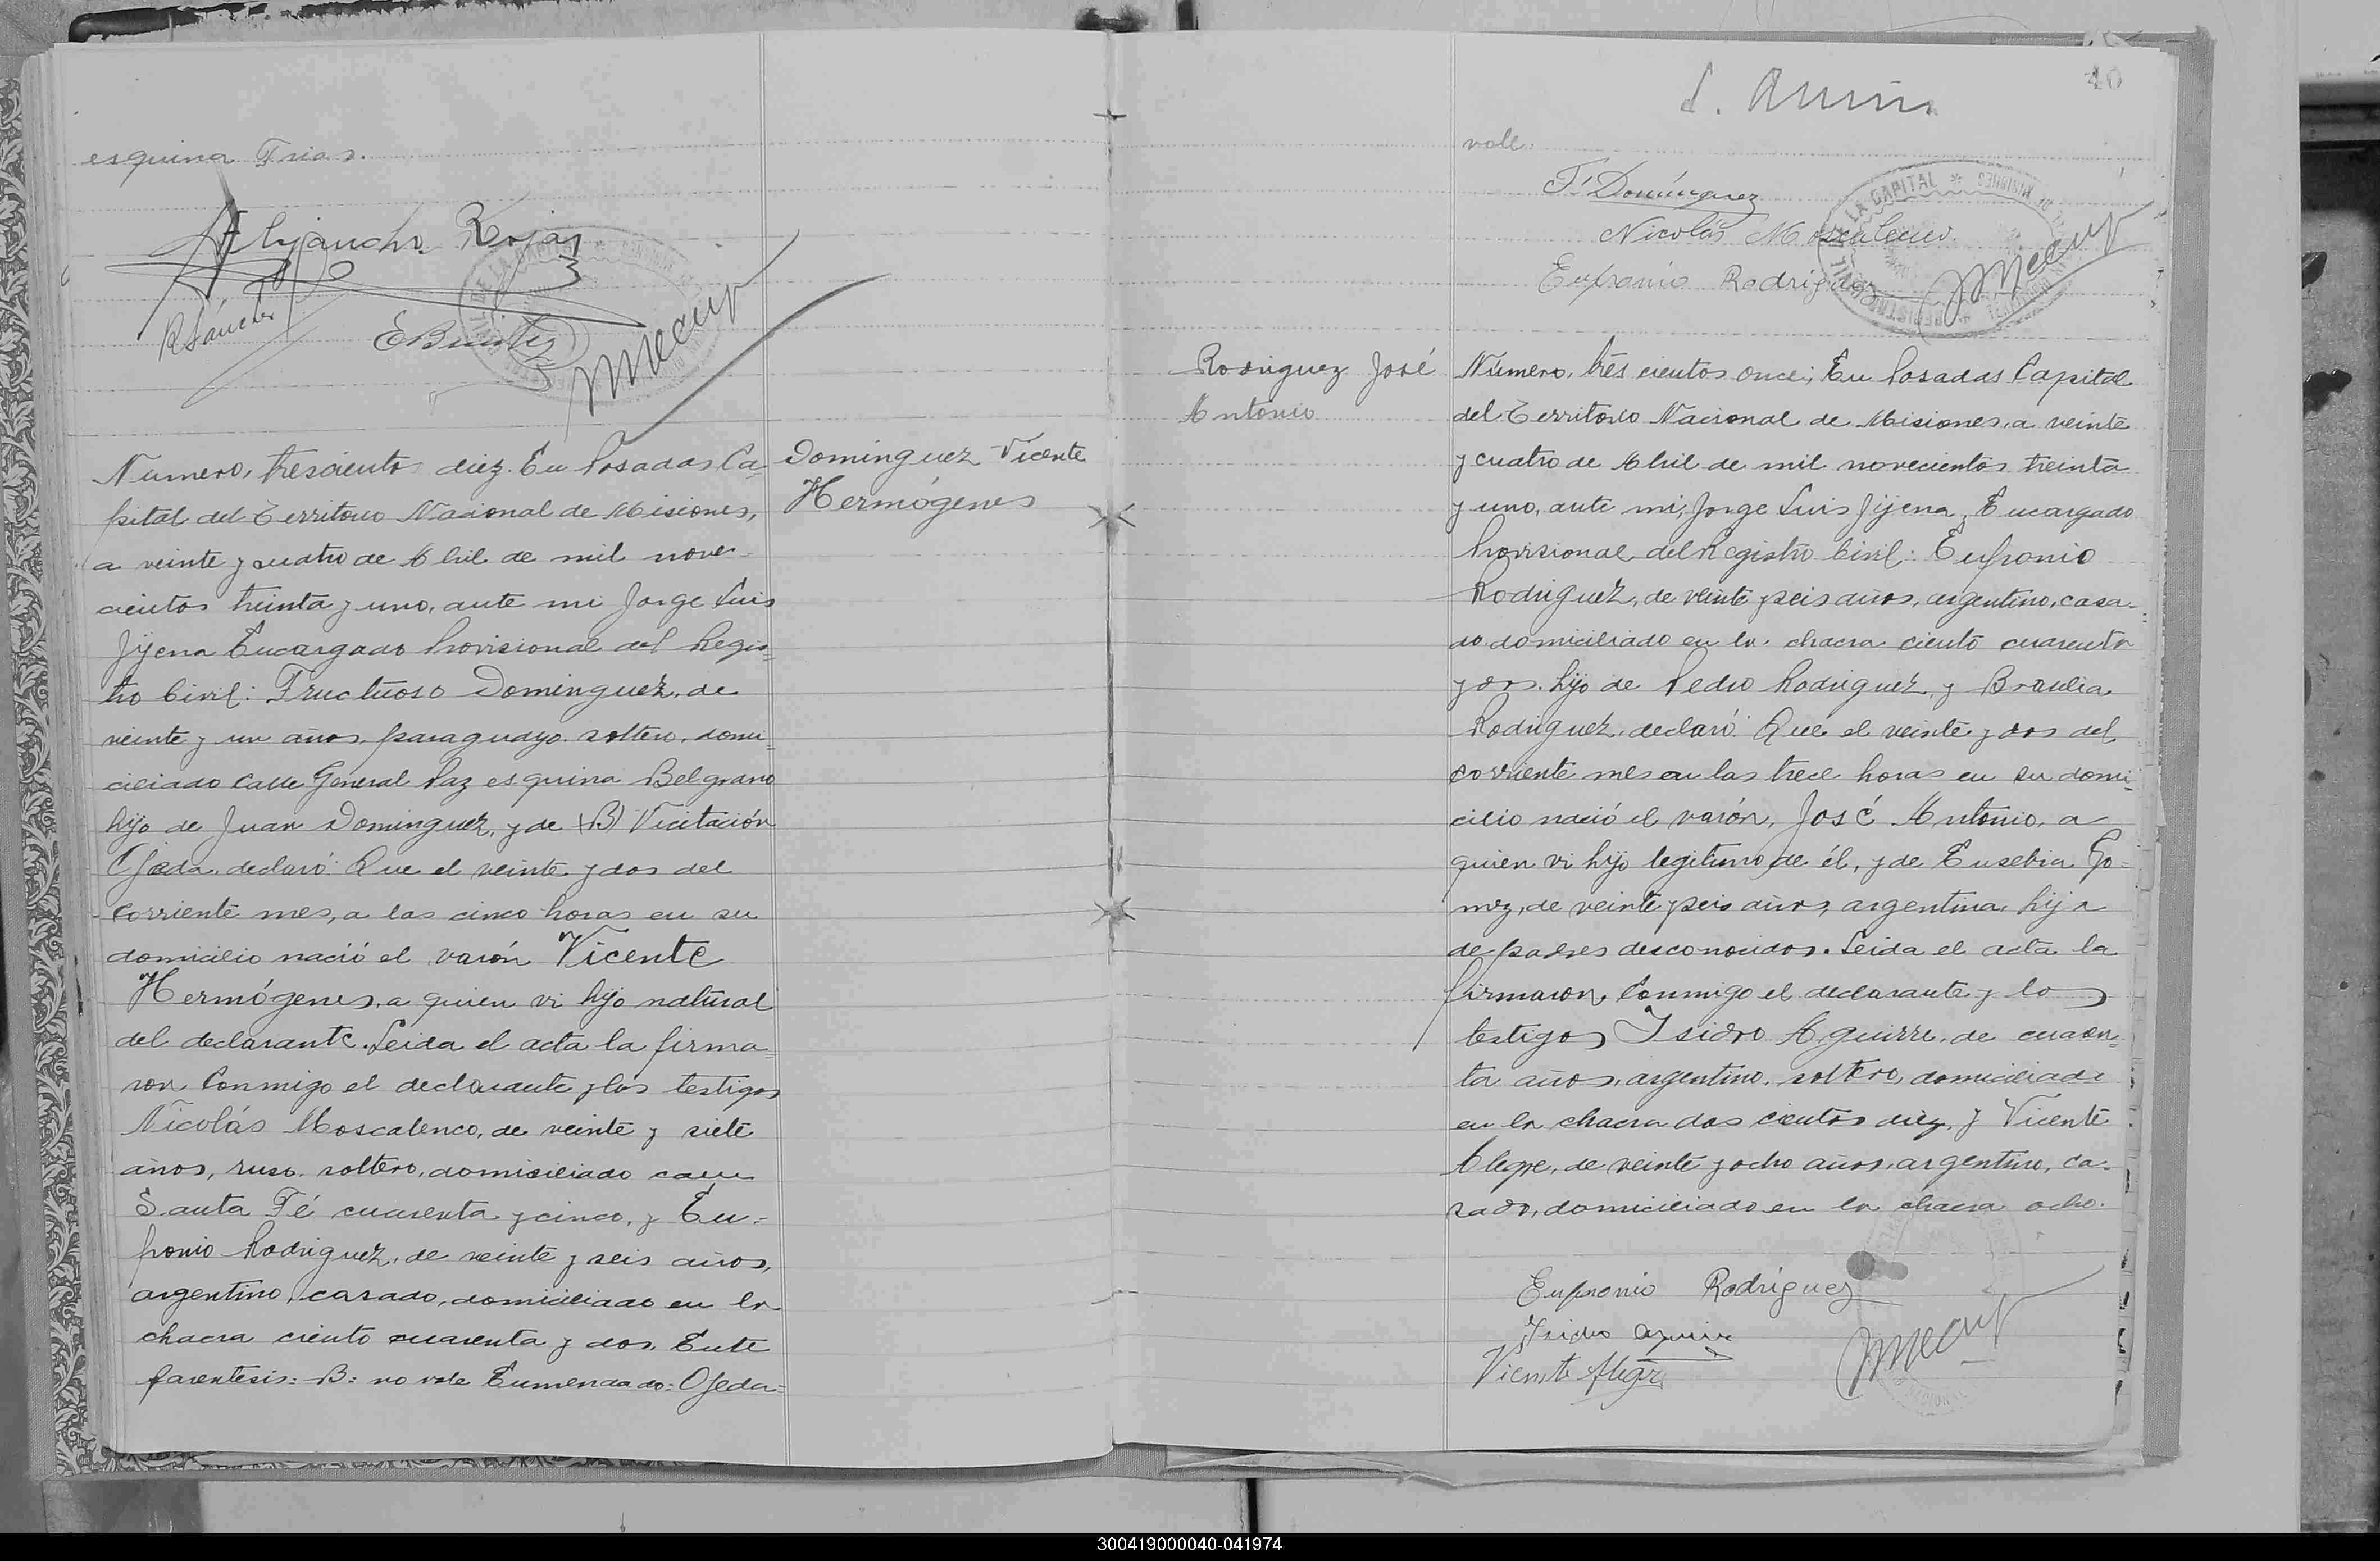 esquina Frias.
Alejandro Rojas
RSánchez
Numero, trescientos diez. En Posadas Ca-
pital del Territorio Nacional de Misiones,
a veinte y cuatro de Abril de mil nove-
cientos treinta y uno, ante mi Jorge Luis
Jijena Encargado Provisional del Regis-
tro Civil: Fructuoso Dominguez, de
veinte y un años, paraguayo, soltero, domi-
ciliado calle General Paz esquina Belgrano
hijo de Juan Dominguez, y de (B) Vicitación
Ojeda, declaró: Que el veinte y dos del
corriente mes, a las cinco horas en su
domicilio nació el varón Vicente
Hermógenes, a quien vi hijo natural
del declarante. Leida el acta la firma-
ron conmigo el declarante y los testigos
Nicolás Moscalenco, de veinte y siete
años, ruso, soltero, domiciliado calle
Santa Fé cuarenta y cinco, y Eu-
fronio Rodriguez, de veinte y seis años,
argentino, casado, domiciliado en la
chacra ciento cuarenta y dos. Ente
parentesis: B: no vale Enmendado: Ojeda=
Dominguez Vicente
Hermógenes
40
vale.
F. Domínguez
Nicolás Moscalenco
Eufronio Rodríguez
Rodriguez José
Antonio
Número, tres cientos once; En Posadas Capital
del Territorio Nacional de Misiones, a veinte
y cuatro de Abril de mil novecientos treinta
y uno, ante mi, Jorge Luis Jijena, Encargado
Provisional del Registro Civil: Eufronio
Rodriguez, de veinte y seis años, argentino, casa-
do domiciliado en la chacra ciento cuarenta
y dos, hijo de Pedro Rodriguez, y Braulia
Rodriguez, declaró: Que el veinte y dos del
corriente mes en las trece horas en su domi-
cilio nació el varón, José Antonio, a
quien vi hijo legitimo de él, y de Eusebia Go-
mez, de veinte y seis años, argentina, hija
de padres desconocidos. Leida el acta la
firmaron conmigo el declarante y los
testigos Isidro Aguirre, de cuaren-
ta años, argentino, soltero, domiciliado
en la chacra dos cientos diez, y Vicente
Alegre, de veinte y ocho años, argentino, ca-
sado, domiciliado en la chacra ocho.
Eufronio Rodríguez
Isidro Aguirre
Vicente Alegre
300419000040-041974